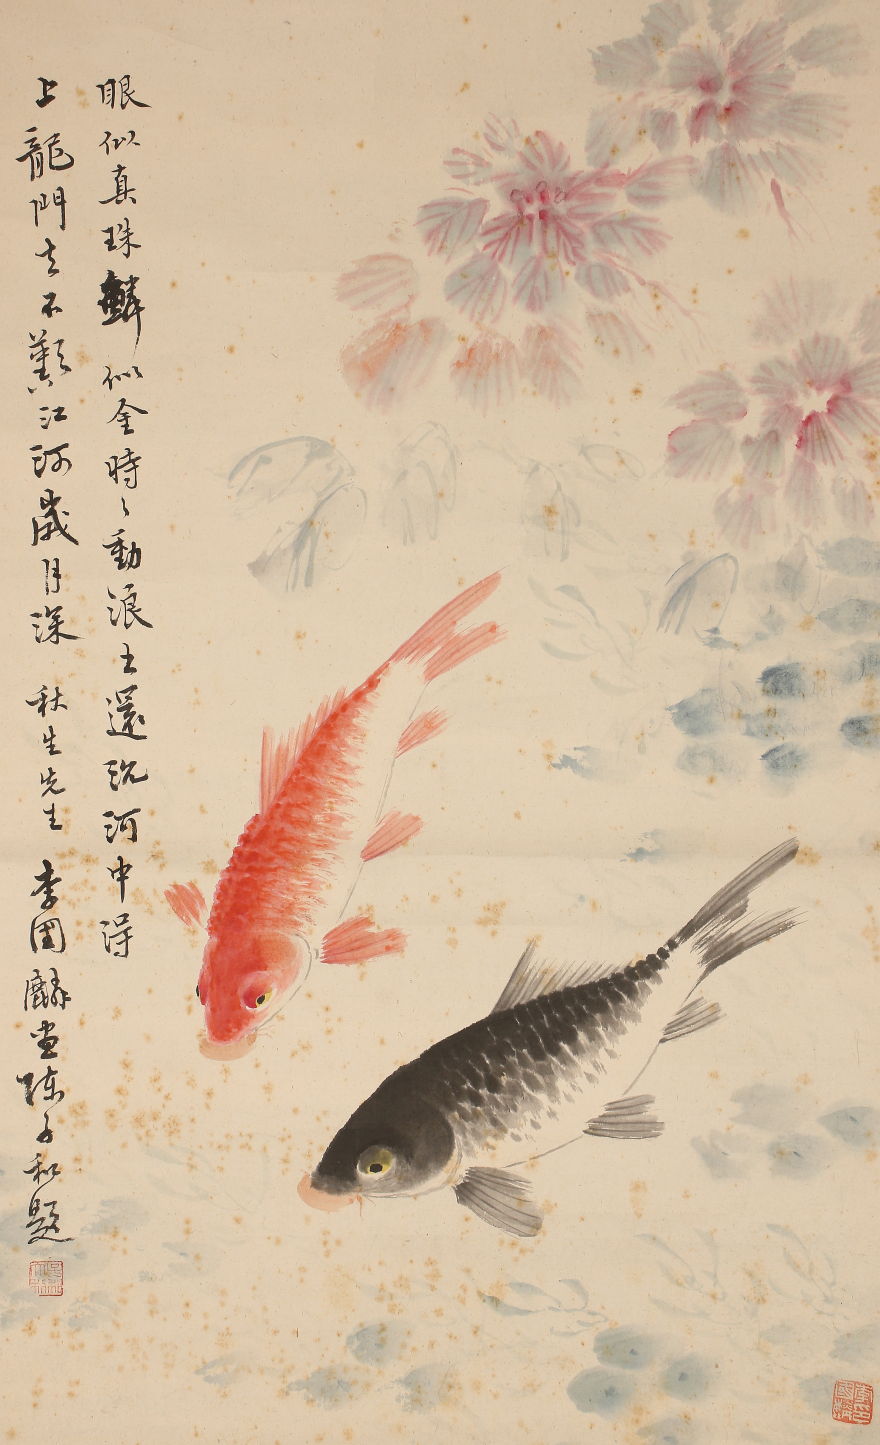 眼似真珠鱗似金時〻動浪出還沉河中得
上龍門去不歎江河歲月深 秋生先生 李國麟画陳子和題